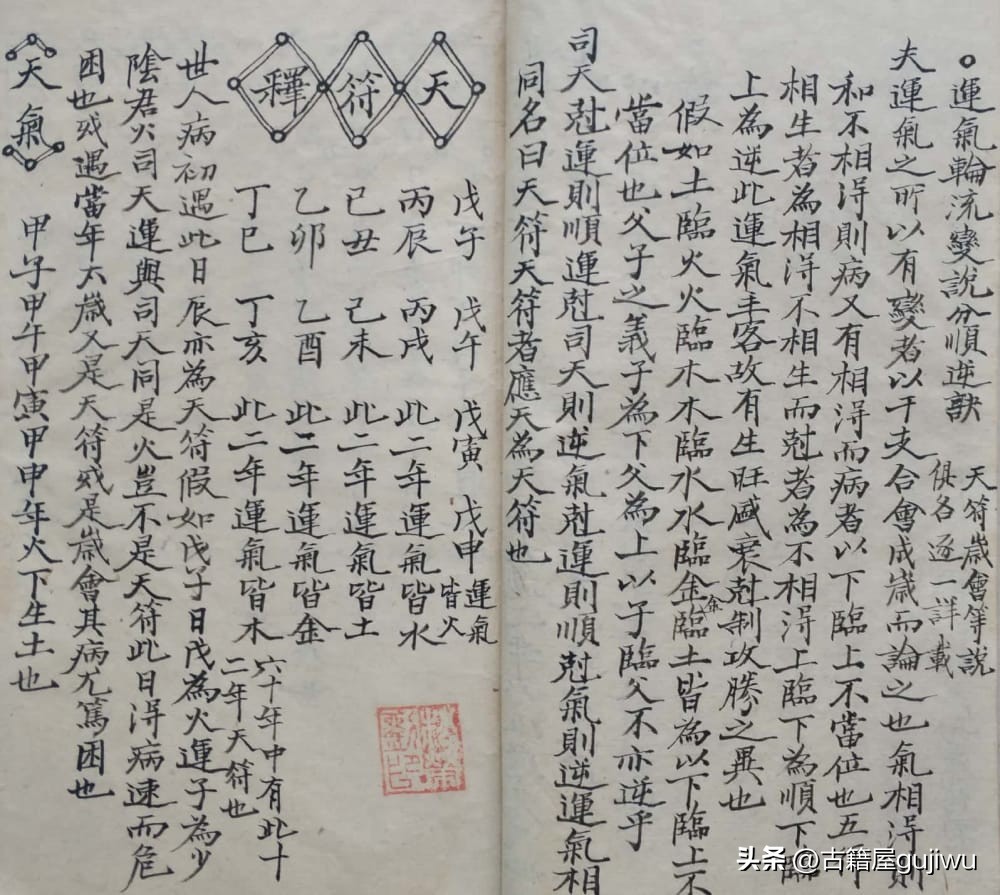 運氣輪流變說分順逆訣
天符歲會等說
俱各逐一詳載
夫運氣之所以有變者以干支合會成歲而論之也氣相得則
和不相得則病又有相得而病者以下臨上不當位也五行
相生者為相得不相生而尅者為不相得上臨下為順下臨
上為逆此運氣主客故有生旺盛衰尅制攻勝之異也
假如土臨火火臨木木臨水水臨金金臨土皆為以下臨上不
當位也父子之義子為下父為上以子臨父不亦逆乎
司天尅運則順運尅司天則逆氣尅運則順尅氣則逆運氣相
同名曰天符天符者應天為天符也
天符釋
戊子 戊午 戊寅 戊申 運氣皆火
丙辰 丙戌 此二年運氣皆水
己丑 己未 此二年運氣皆土
乙卯 乙酉 此二年運氣皆金
丁巳 丁亥 此二年運氣皆木
六十年中有此十
二年天符也
世人病初遇此日辰亦為天符假如戊子日戊為火運子為少
陰君火司天運與司天同是火豈不是天符此日得病速而危
困也或遇當年太歲又是天符或是歲會其病尤篤困也
天氣
甲子甲午甲寅甲申年火下生土也
头条 @古籍屋gujiwu